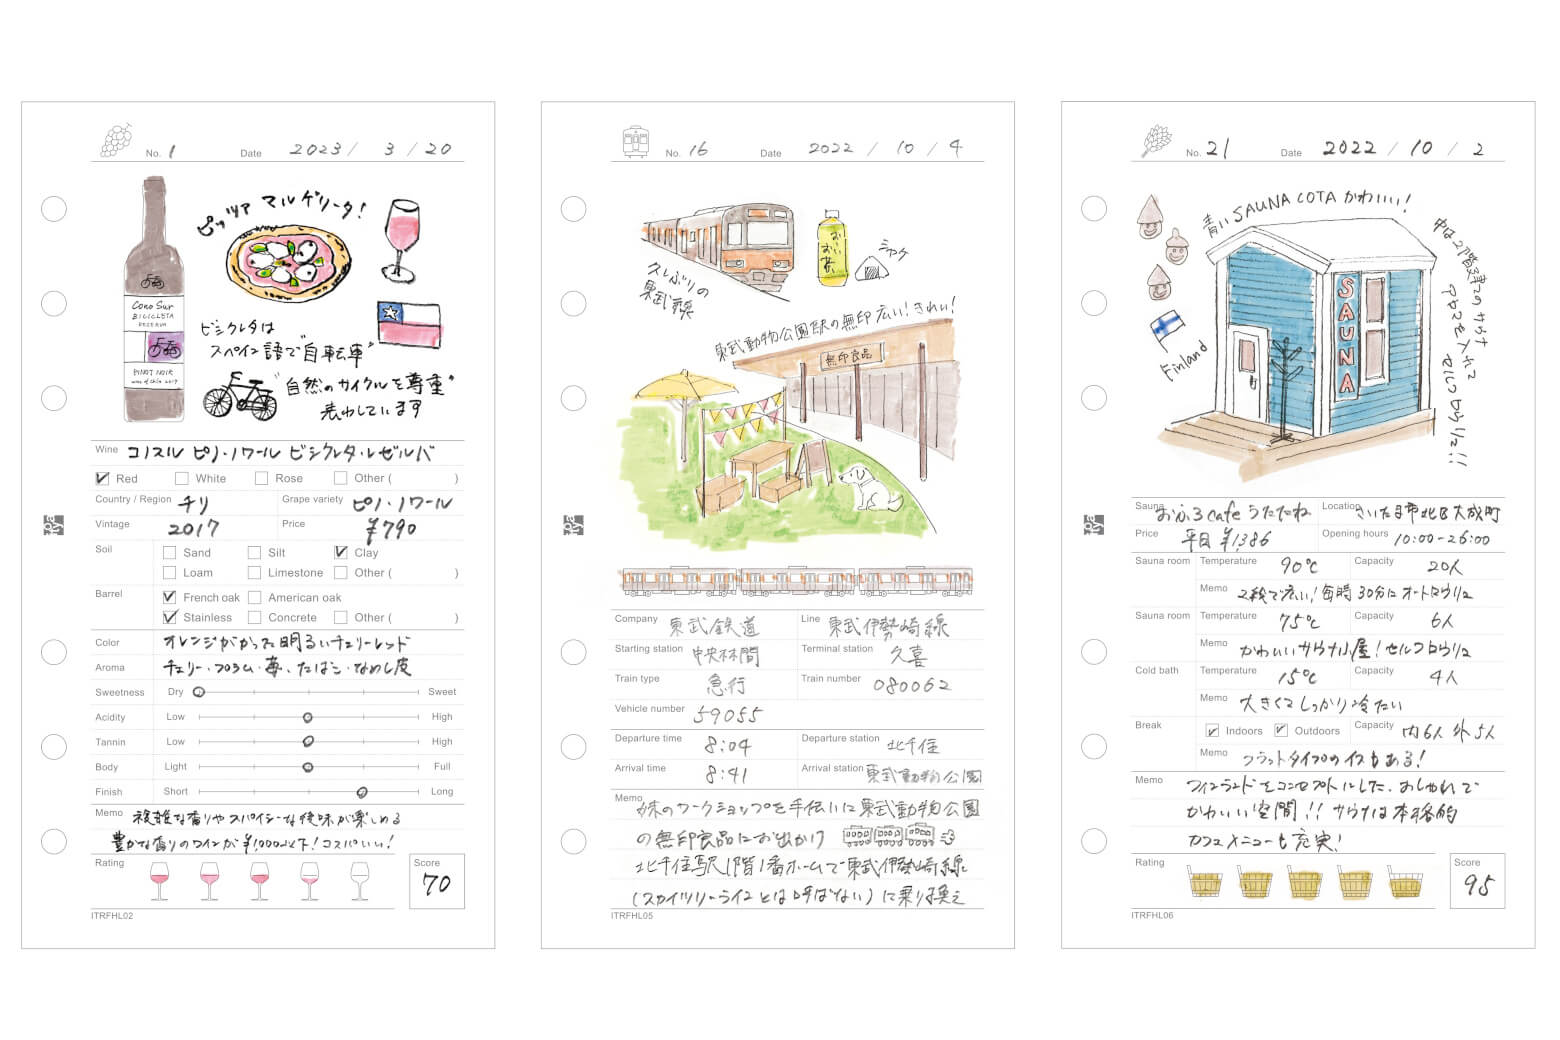 No. 1 Date 2023 / 3 / 20
ピッツァ マルゲリータ!
Cono Sur
BICICLETA
RESERVA
PINOT NOIR
ビシクレタは
スペイン語で"自転車"
"自然のサイクルを尊重"
表わしています
Wine コノスル ピノ・ノワール ビシクレタ・レゼルバ
Red White Rose Other ( )
Country / Region チリ Grape variety ピノ・ノワール
Vintage 2017 Price ¥790
Soil Sand Silt Clay
Loam Limestone Other ( )
Barrel French oak American oak
Stainless Concrete Other ( )
Color オレンジがかった明るいチェリーレッド
Aroma チェリー・プラム・苺・たばこ・なめし皮
Sweetness Dry Sweet
Acidity Low High
Tannin Low High
Body Light Full
Finish Short Long
Memo 複雑な香りやスパイシーな後味が楽しめる
豊かな香りのワインが¥1,000以下!コスパいい!
Rating Score
70
ITRFHL02
No. 16 Date 2022 / 10 / 4
久しぶりの
東武線
おーいお茶
シャケ
東武動物公園駅の無印広い!きれい!
無印良品
Company 東武鉄道 Line 東武伊勢崎線
Starting station 中央林間 Terminal station 久喜
Train type 急行 Train number 080062
Vehicle number 59055
Departure time 8:04 Departure station 北千住
Arrival time 8:41 Arrival station 東武動物公園
Memo 妹のワークショップを手伝いに東武動物公園
の無印良品にお出かけ
北千住駅1階1番ホームで東武伊勢崎線
(スカイツリーラインとは呼ばない)に乗り換え
ITRFHL05
No. 21 Date 2022 / 10 / 2
青い SAUNA COTA かわいい!
中は2階建のサウナ
アロマを入れて
セルフロウリュ!!
SAUNA
Finland
Sauna おふろcafe うたたね Location さいたま市北区大成町
Price 平日 ¥1,386 Opening hours 10:00-26:00
Sauna room Temperature 90℃ Capacity 20人
Memo 2段で広い!毎時30分にオートロウリュ
Sauna room Temperature 75℃ Capacity 6人
Memo かわいいサウナ小屋!セルフロウリュ
Cold bath Temperature 15℃ Capacity 4人
Memo 大きくてしっかり冷たい
Break Indoors Outdoors Capacity 内6人 外5人
Memo フラットタイプのイスもある!
Memo フィンランドをコンセプトにした、おしゃれで
かわいい空間!!サウナは本格的
カフェメニューも充実!
Rating Score
95
ITRFHL06